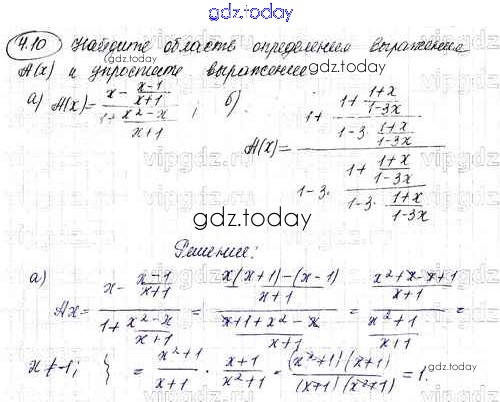 gdz.today
4.10 Найдите область определения выражения
A(x) и упростите выражение
а) A(x) = (x - (x-1)/(x+1)) / (1 + (x²-x)/(x+1)) ; б) A(x) = (1 + (1 + (1+x)/(1-3x)) / (1-3·(1+x)/(1-3x))) / (1-3·(1 + (1+x)/(1-3x)) / (1-3·(1+x)/(1-3x)))
gdz.today
Решение:
а) Ax = (x - (x-1)/(x+1)) / (1 + (x²-x)/(x+1)) = ((x(x+1)-(x-1))/(x+1)) / ((x+1+x²-x)/(x+1)) = ((x²+x-x+1)/(x+1)) / ((x²+1)/(x+1)) =
x≠-1; } = (x²+1)/(x+1) · (x+1)/(x²+1) = ((x²+1)(x+1))/((x+1)(x²+1)) = 1.
gdz.today